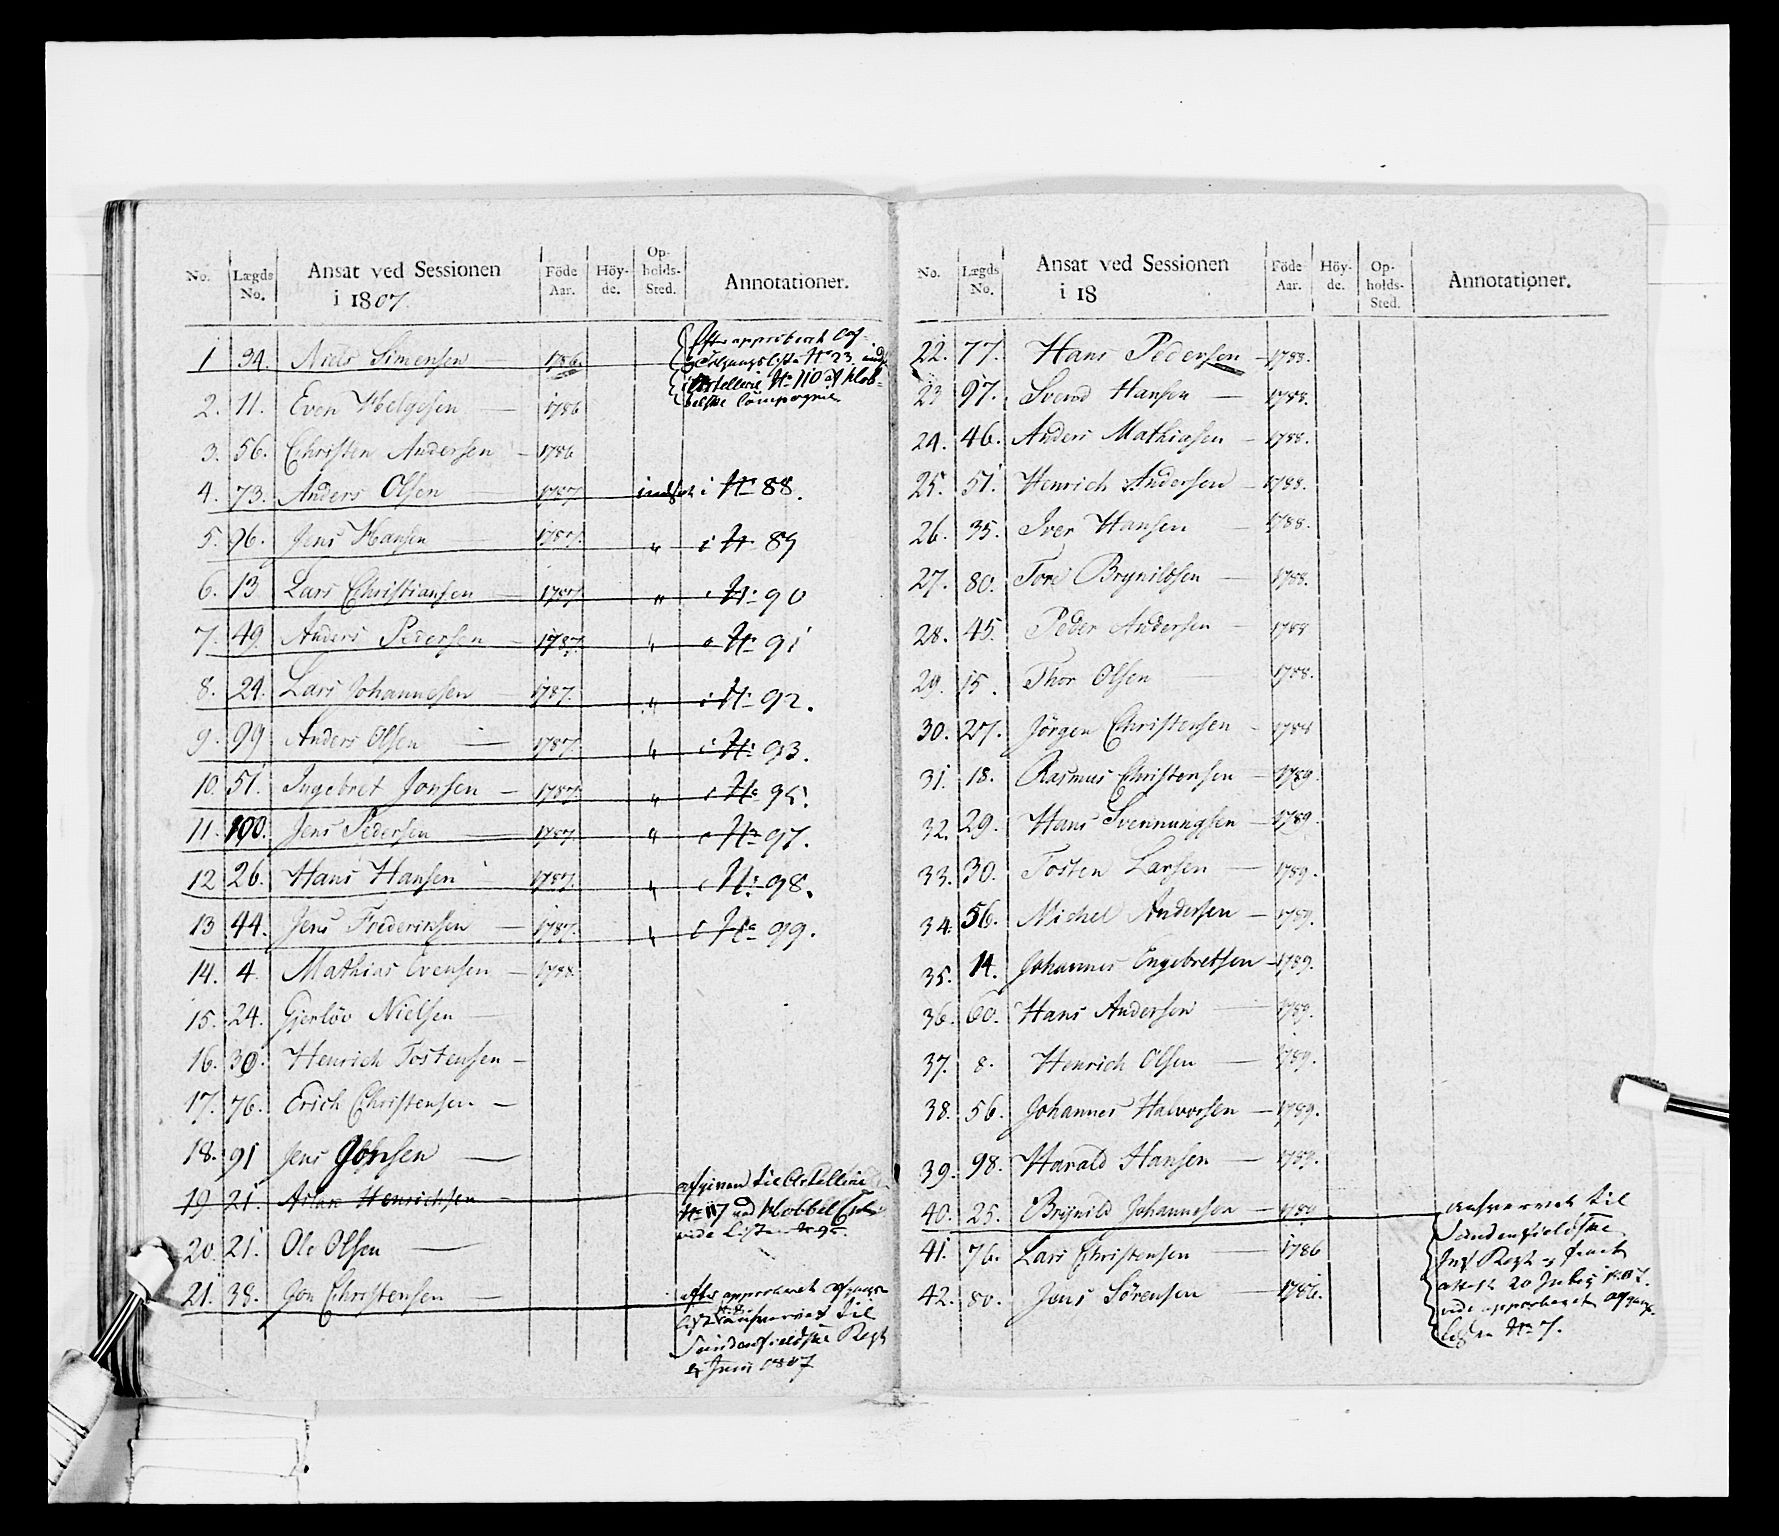 No. Lægds No. Ansat ved Sessionen i 1807. Föde Aar. Höyde. Opholds-Sted. Annotationer.
1 34. Niels Simensen 1786. Efter approberet Afgangsliste No 23 inds i Artellerie No 110 af Klobbelske Compagnie
2. 11. Even Helgesen — 1786
3. 56. Christen Andersen — 1786
4. 73. Anders Olsen — 1787 indsat i No 88.
5. 96. Jens Hansen — 1787. " i No 89
6. 13 Lars Christiansen — 1787 " i No 90
7. 49. Anders Pedersen — 1787. " i No 91
8. 24. Lars Johannesen 1787. " i No 92.
9. 99 Anders Olsen — 1787. " i No 93.
10. 51. Ingebret Jonsen — 1787. " i No 95.
11. 100. Jens Pedersen — 1787. " i No 97.
12 26. Hans Hansen 1787. " i No 98.
13 44. Jens Frederiksen — 1787. " i No 99.
14. 4. Mathias Evensen — 1788.
15. 24. Gjerlöv Nielsen —
16. 30. Henrich Tostensen —
17. 76. Erich Christensen —
18. 91 Jens Johsen —
19 21. Aslak Henrichsen — afgiven til Artellerie No 117 ved Klobbel vide Liste No 96.
20. 21. Ole Olsen —
21. 38. Jon Christensen — efter approberet Afgangs List No 8 transporteret til Søndenfieldske Regt Juni 1807
No. Lægds No. Ansat ved Sessionen i 18 Föde Aar. Höyde. Opholds-Sted. Annotationer.
22. 77. Hans Pedersen — 1788.
23 97. Svend Hansen — 1788.
24. 46. Anders Mathiasen — 1788.
25. 51. Henrich Andersen — 1788.
26. 35. Iver Hansen — 1788.
27. 80. Tore Brynildsen — 1788.
28. 45. Peder Andersen — 1788
29. 15. Thor Olsen — 1788.
30. 27. Jörgen Christensen — 1788
31. 18. Rasmus Christensen — 1789.
32. 29. Hans Svennungsen — 1789.
33. 30. Tosten Larsen — 1789.
34. 56. Michel Andersen — 1789.
35. 14. Johannes Engebretsen — 1789.
36. 60. Hans Andersen — 1789.
37. 8. Henrich Olsen — 1789.
38. 56. Johannes Halvorsen — 1789.
39. 98. Harald Hansen — 1789.
40. 25. Brynild Johannesen — 1789 til Søndenfieldske Inf Regt attest 20 July 1807. vide approberet afgangs No 7.
41. 76. Lars Christensen — 1786
42. 80. Jens Sörensen — 1786.